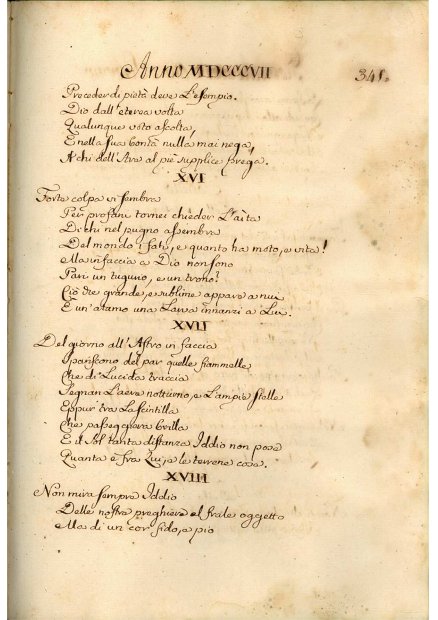 Anno MDCCCVII 341.
Preceder di pietà deve L'esempio.
Dio dall'eterea volta
Qualunque voto ascolta,
E nella sua bontà nulla mai nega,
A chi dell'Are al piè supplice prega.
XVI
Forte colpa vi sembra
Per profani tornei chieder L'aita
Di chi nel pugno assembra
Del mondo i fati, e quanto ha moto, e vita!
Ma in faccia a Dio non sono
Pari un tugurio, e un trono?
Ciò che grande, e sublime appare a nui
È un'atamo una Larva innanzi a Lui.
XVII
Del giorno all'Astro in faccia
Spariscono del par quelle fiammelle
Che di Lucida traccia
Segnan L'aere notturno, e Lampie stelle
Eppur tra La scintilla
Che passeggiera brilla
E il Sol tanta distanza Iddio non pose
Quanta è fra Lui, e le terrene cose.
XVIII
Non mira sempre Iddio
Delle nostre preghiere al frale oggetto
Ma di un cor fido, e pio